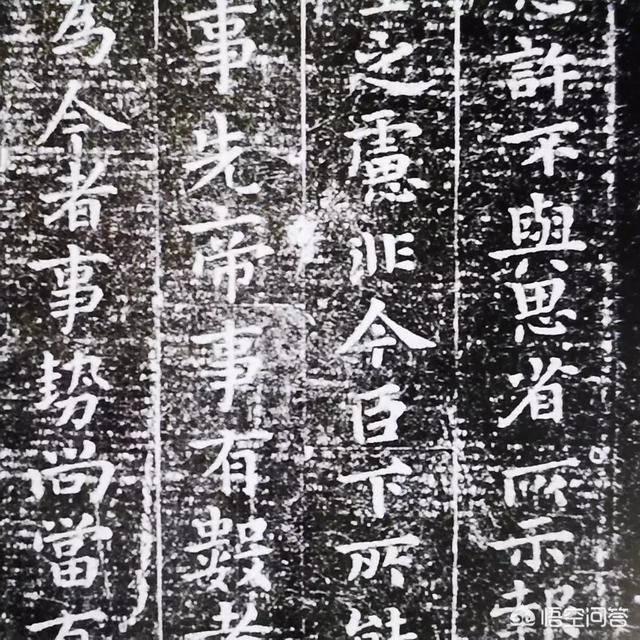 許不與思省所示報
之慮非今臣下所能
事先帝事有數者
為今者事勢尚當有
悟空问答